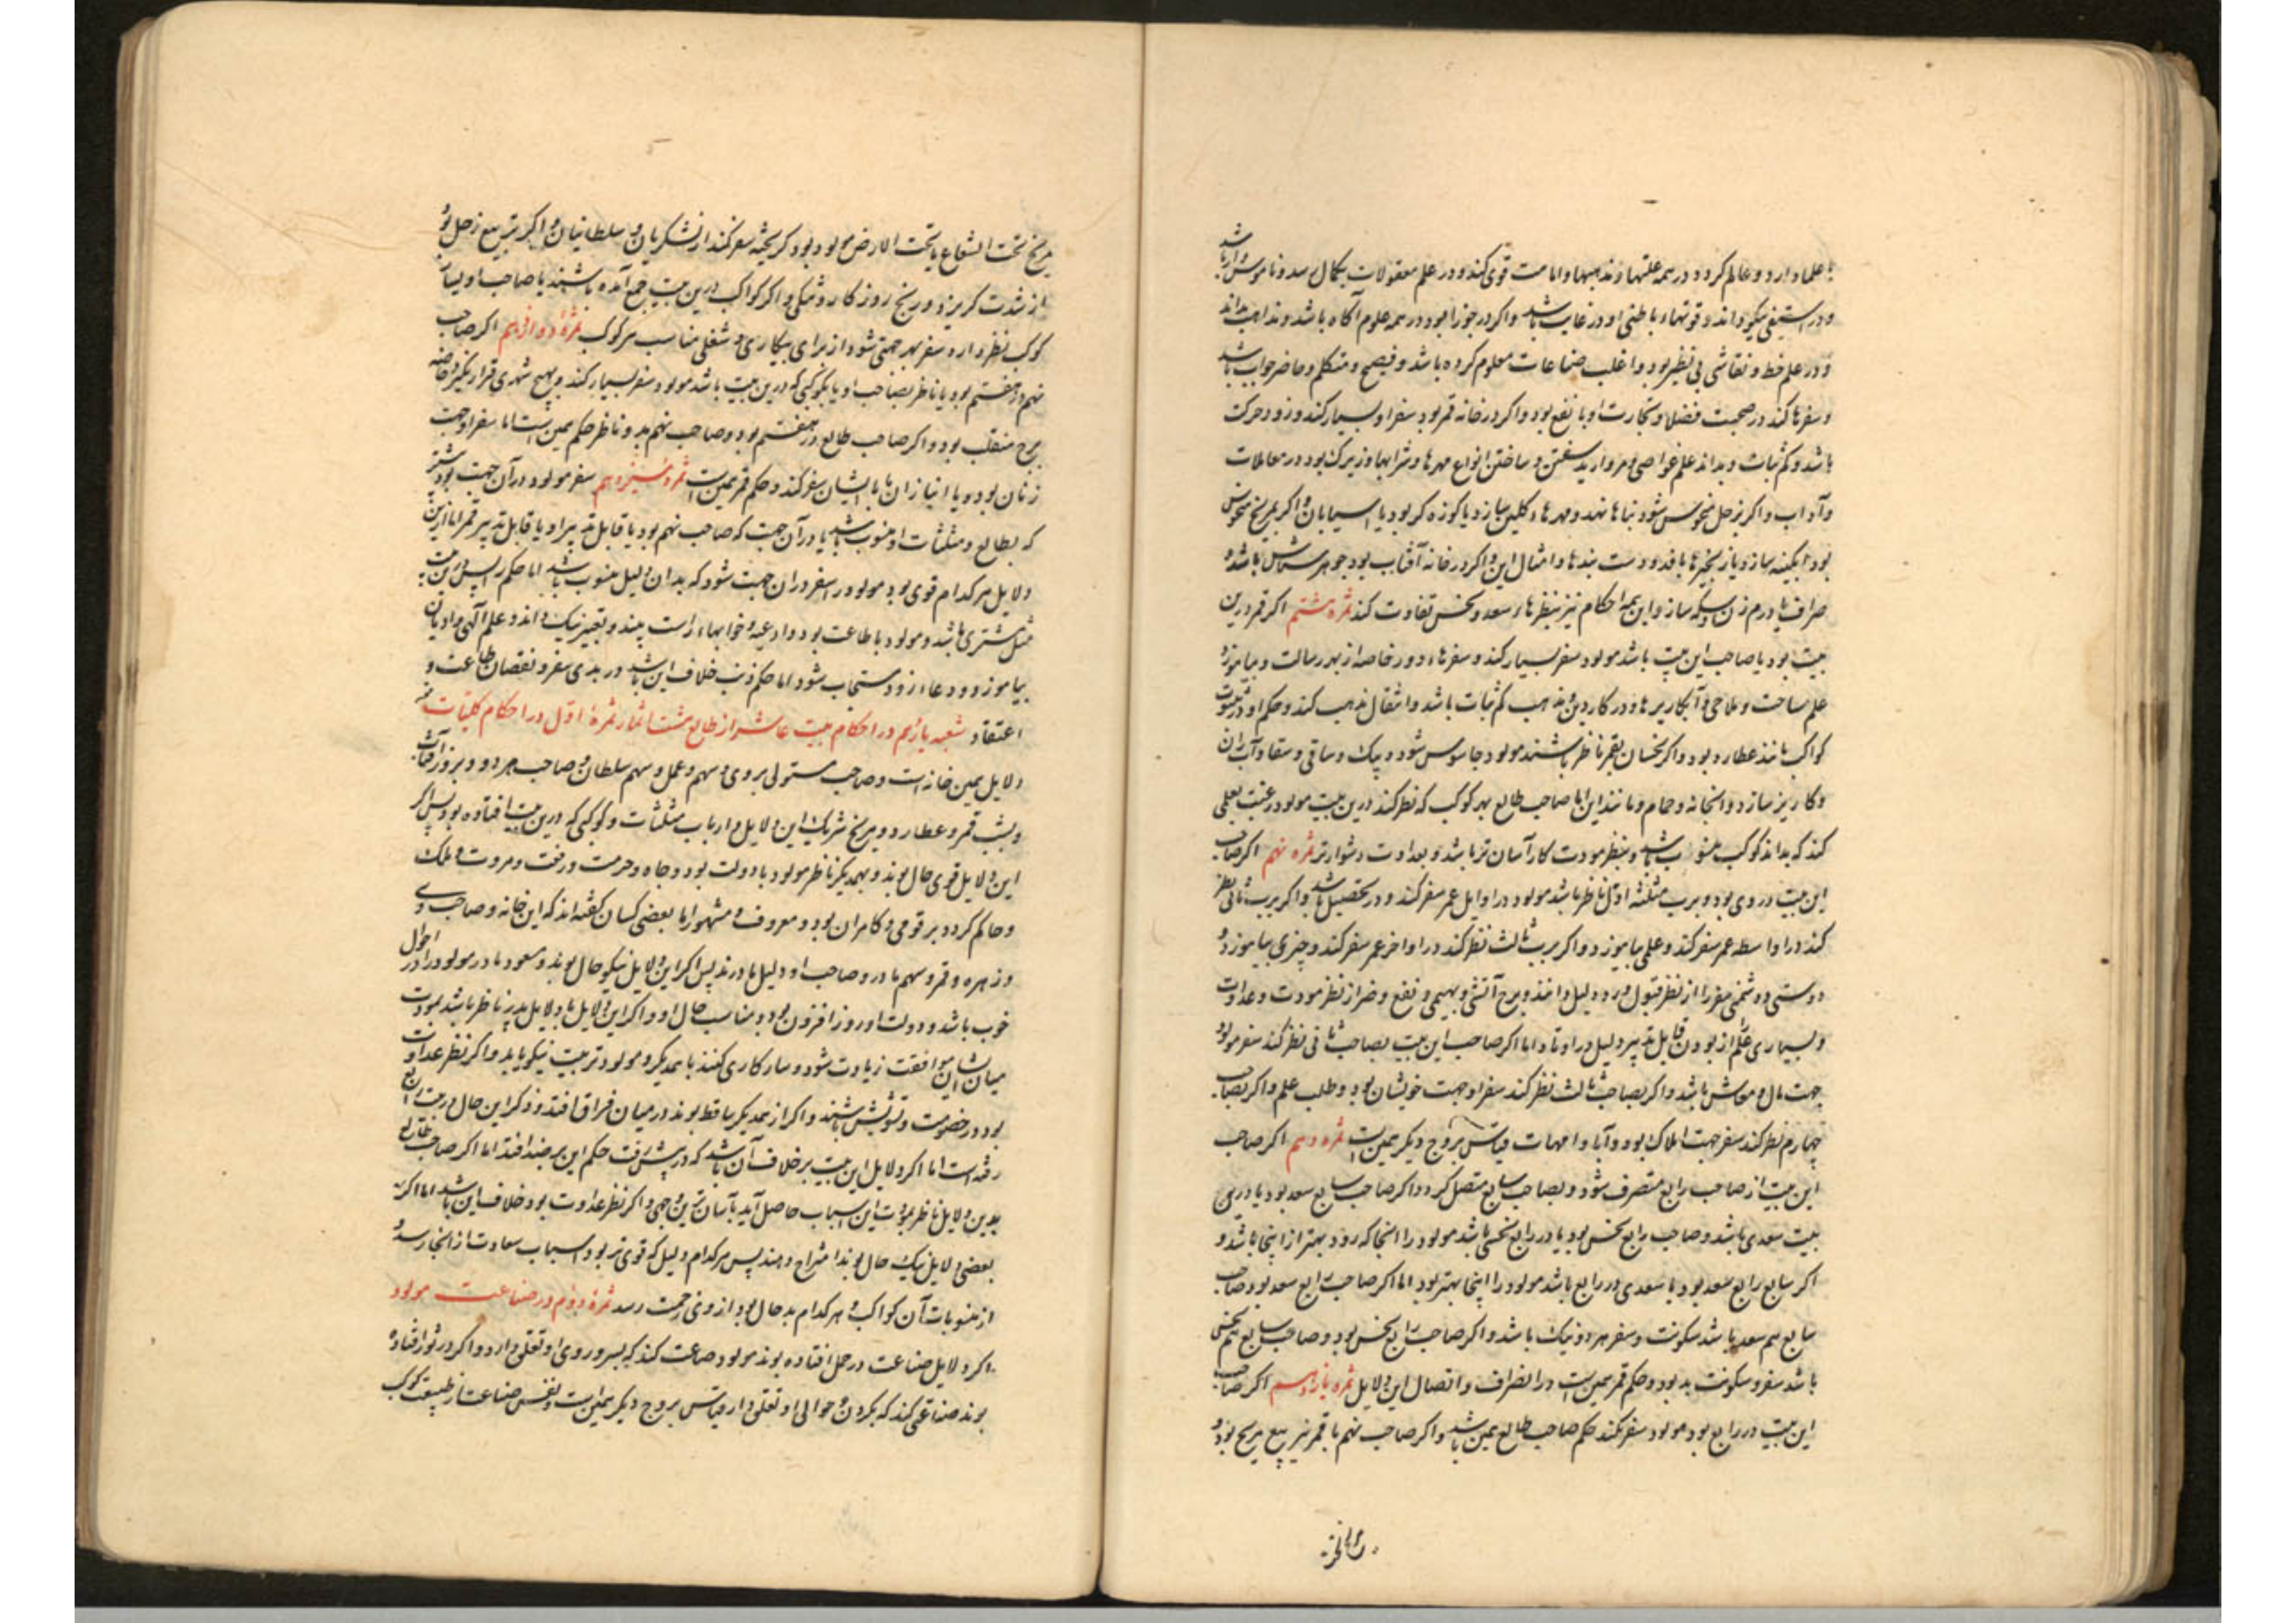 با علما دارد و عالم کردد در همه علتها و مذهبها و امامت قوی کند و در علم معقولات بکمال رسد و ناموس دار باشد
و در استیفی نیکو داند و قوتهاء باطنی او در غایت باشد و اکر در جوزا بود در همه علوم آکاه باشد و مذاهب بداند
و در علم خط و نقاشی بی نظیر بود و اغلب صناعات معلوم کرده باشد و فصیح و متکلم و حاضر جواب باشد
و سفرها کند در صحبت فضلا و تجارت او با نفع بود و اکر در خانه قمر بود سفر او بسیار کند و زود حرکت
باشد و کم ثبات و بداند علم غواصی و مروارید سفتن و ساختن انواع مهرها و شرابها و زیرک بود در معاملات
و آداب و اکر بزحل منحوس شود بناها نهد و مهرهاء کلین سازد یا کوزه کر بود یا آسیابان و اکر بمریخ منحوس
بود آبکینه سازد یا زنجیرها بافد و دست بندها و امثال این و اکر در خانه آفتاب بود جوهر شناس باشد و
صراف یا درم زن و سکه ساز و این همه احکام نیز بنظرهاء سعد و نحس تفاوت کند ثمره هشتم اکر قمر درین
بیت بود یا صاحب این بیت باشد مولود سفر بسیار کند و سفرهاء دور خاصه از بهر رسالت و بیاموزد
علم مساحت و ملاحی و آبکاریرها و در کار دین و مذهب کم ثبات باشد و انتقال مذهب کند و حکم او در تثلیث
کواکب مانند عطارد بود و اکر نحسان بقمر ناظر باشند مولود جاسوس شود و پیک و ساقی و سقا و آب ران
و کاریز ساز و دواتخانه و حمام و مانند این اما صاحب طالع بهر کوکب که نظر کند درین بیت مولود رغبت بعلمی
کند که بدان کوکب منسوب باشد و بنظر مودت کار آسان تر باشد و بعداوت دشوارتر ثمره نهم اکر صاحب
این بیت در وی بود و برب مثلثه اول ناظر باشد مولود در اوایل عمر سفر کند و در تحصیل باشد و اکر برب ثانی نظر
کند در اواسطه عمر سفر کند و علمی بیاموزد و اکر برب ثالث نظر کند در اواخر عمر سفر کند و چیزی بیاموزد و
دوستی و دشمنی سفر را از نظر قبول و رد دلیل دانند و برج آتشی و بهیمی و نفع و ضر از نظر مودت و عداوت
و بسیاری علم از بودن قابل تدبیر دلیل در اوتاد اما اکر صاحب این بیت بصاحب ثانی نظر کند سفر مولود
جهت مال و معاش باشد و اکر بصاحب ثالث نظر کند سفر او جهت خویشان بود و طلب علم و اکر بصاحب
چهارم نظر کند سفر جهت املاک بود و آبا و امهات و قیاس بروج دیکر همین است ثمره دهم اکر صاحب
این بیت از صاحب رابع منصرف شود و بصاحب سابع متصل کردد اکر صاحب سابع سعد بود یا درین
بیت سعدی باشد و صاحب رابع نحس بود یا در رابع نحسی باشد مولود را آنجا که رود بهتر از اینجا باشد و
اکر سابع رابع سعد بود یا سعدی در رابع باشد مولود را اینجا بهتر بود اما اکر صاحب رابع سعد بود و صاحب
سابع هم سعد باشد سکونت و سفر هر دو نیک باشد و اکر صاحب رابع نحس بود و صاحب سابع هم نحس
باشد سفر و سکونت بد بود و حکم قمر همین است در انصراف و اتصال این دلایل ثمره یازدهم اکر صاحب
این بیت در رابع بود مولود سفر نکند حکم صاحب طالع همین باشد و اکر صاحب نهم با قمر نیز بتربیع مریخ بود و
مریخ تحت الشعاع یا تحت الارض مولود بود کریخته سفر کند از لشکریان و سلطانیان و اکر بتربیع زحل بود
از شدت کریزد و رنج روزکار و تنکی و اکر کواکب درین بیت جمع آمده باشند یا صاحب او بسیار
کوکب نظر دارد سفر بهر جهتی شود از برای بیکاری و شغلی مناسب هر کوکب ثمرهٔ دوازدهم اکر صاحب
نهم در هفتم بود یا ناظر بصاحب او یا بکوکبی که درین بیت باشد مولود سفر بسیار کند و بهیچ شهری قرار نکیرد خاصه
برج منقلب بود و اکر صاحب طالع در هفتم بود و صاحب نهم بدو ناظر حکم همین است اما سفر او جهت
زنان بود و یا انبازان یا با ایشان سفر کند و حکم قمر همین است ثمره سیزدهم سفر مولود در آن جهت بود بیشتر
که بطالع و مثلثات او منسوب باشد یا در آن جهت که صاحب نهم بود یا قابل تدبیر او یا قابل تدبیر قمر اما ازین
دلایل هر کدام قوی بود مولود را سفر در ان جهت شود که بدان دلیل منسوب باشد اما حکم راس درین بیت
مثل مشتری باشد و مولود با طاعت بود و ادعیه و خوابهاء راست بیند و تعبیر نیک داند و علم الهی و ادیان
بیاموزد و دعاء زود مستجاب شود اما حکم ذنب خلاف این باشد در بدی سفر و نقصان طاعت و
اعتقاد شعبه یازدهم در احکام بیت عاشر از طالع هشت اثمار ثمرهٔ اول در احکام کلیات
دلایل همین خانه است و صاحب مستولی بروی و سهم و عمل و سهم سلطان و صاحب هر دو و بروز آفتاب
و بشب قمر و عطارد و مریخ شریک این دلایل و ارباب مثلثات و کوکبی که درین بیت افتاده بود پس اکر
این دلایل قوی حال بوند و بهمدیکر ناظر مولود با دولت بود و جاه و حرمت و رفعت و مروت و ملک
و حاکم کردد بر قومی و کامران بود و معروف و مشهور اما بعضی کسان کفته اند که این خانه و صاحب وی
و زهره و قمر و سهم مادر و صاحب او دلیل مادرند پس اکر این دلایل نیکو حال بوند و مسعود مادر مولود را احوال
خوب باشد و دولت او روز افزون بود و مناسب حال او و اکر این دلایل با دلایل پدر ناظر باشد بمودت
میان ایشان موافقت زیادت شود و سازکاری کنند با همدیکر و مولود تربیت نیکو یابد و اکر نظر عداوت
بود در خصومت و تشویش باشند و اکر از همدیکر ساقط بوند در میان فراق افتد و ذکر این حال در بیت رابع
رفته است اما اکر دلایل این بیت بر خلاف آن باشد که در پیش رفت حکم این بر ضد افتد اما اکر صاحب طالع
بدین دلایل ناظر بمودت این اسباب حاصل آید بآسان ترین وجهی و اکر نظر عداوت بود خلاف این باشد اما اکر
بعضی دلایل نیک حال بوند امتزاج دهند پس هر کدام دلیل که قوی تر بود اسباب سعادت از انجا رسد و
از منسوبات آن کواکب و هر کدام بد حال بود از وی زحمت رسد ثمرهٔ دوم در صناعت مولود
اکر دلایل صناعت در حمل افتاده بوند مولود صناعت کند که بسر و روی او تعلق دارد و اکر در ثور افتاده
بوند صناعتی کند که بکردن و حوالی او تعلق دارد قیاس بروج دیکر همین است و نفس صناعت از طبیعت کوکب